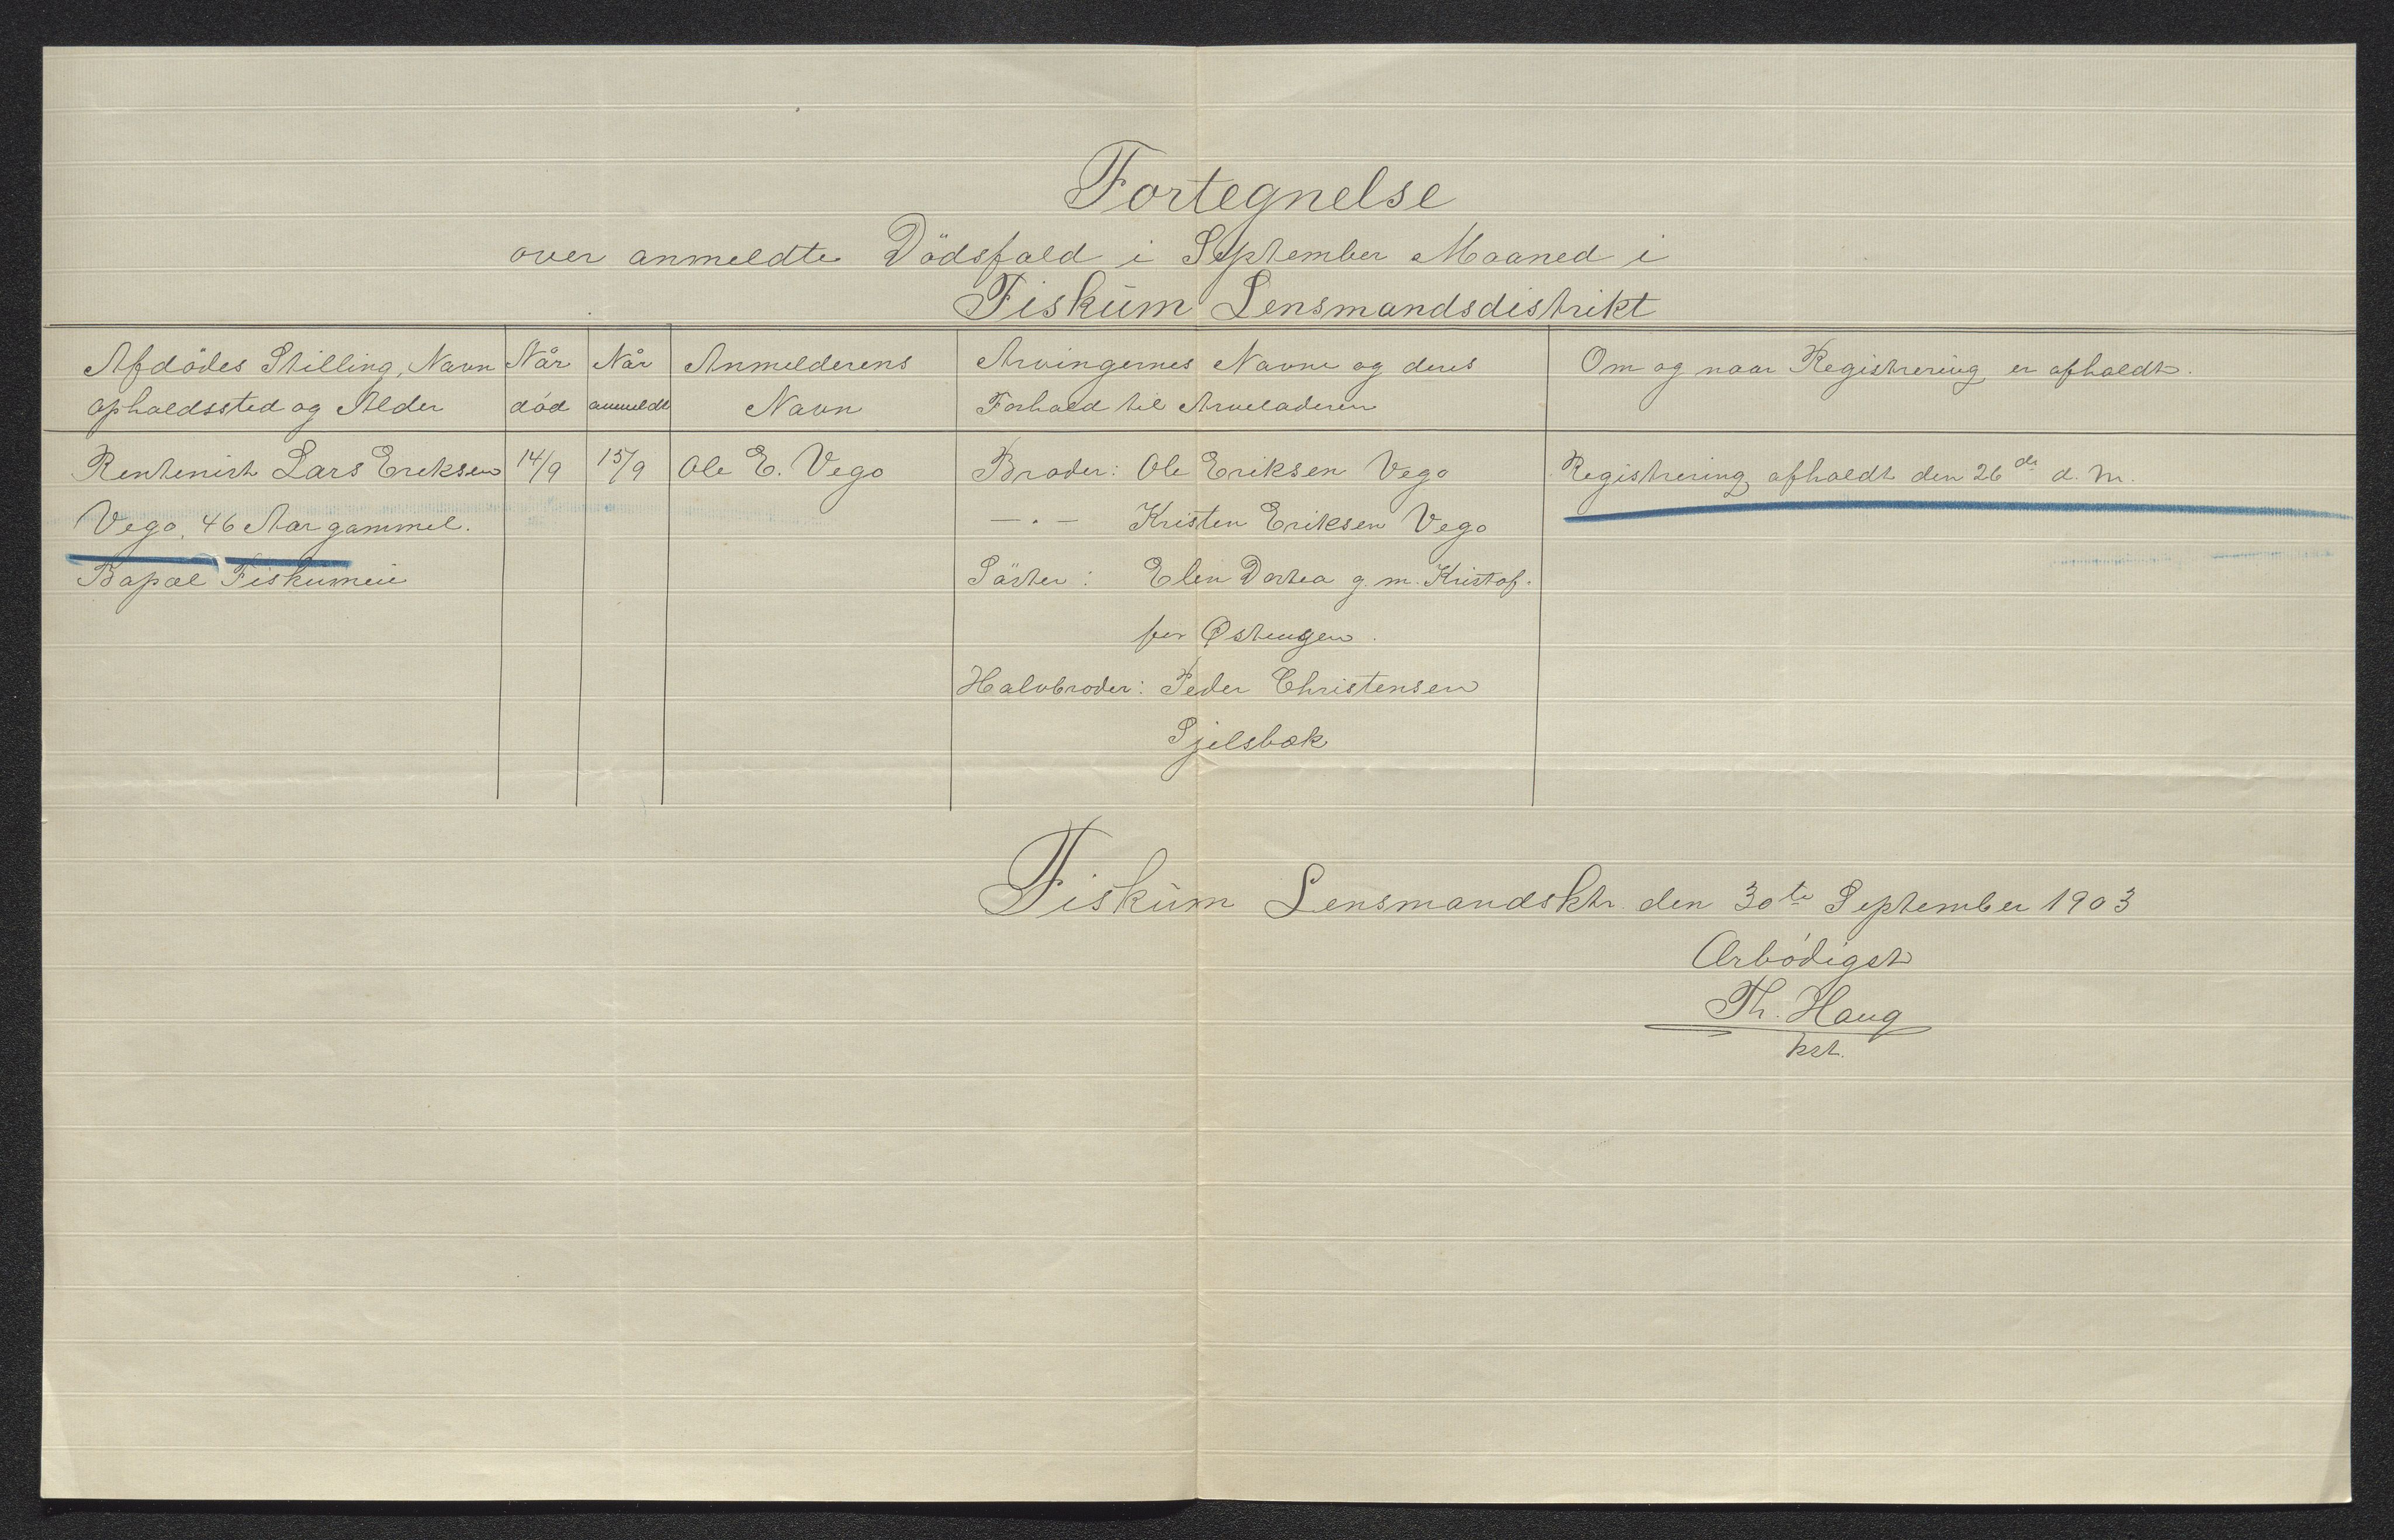 Fortegnelse
over anmeldte Dödsfald i September Maaned i
Fiskum Lensmandsdistrikt
Afdödes Stilling, Navn
opholdssted og Alder
Når
död
Når
anmeldt
Anmelderens
Navn
Arvingernes Navne og deres
Forhold til Arveladeren
Om og naar Registrering er afholdt.
Rentenist Lars Ereksen
Vego, 46 Aar gammel.
Bopæl Fiskumeie
14/9
15/9
Ole E. Vego
Broder: Ole Eriksen Vego
— . — Kristen Eriksen Vego
Söster: Elen Dortea g. m. Kristof-
fer Østengen.
Halvbroder: Peder Christensen
Sjelsbæk
Registrering afholdt den 26de d. M.
Fiskum Lensmandsktr. den 30te September 1903
Ærbödigst
Th. Haug
kst.